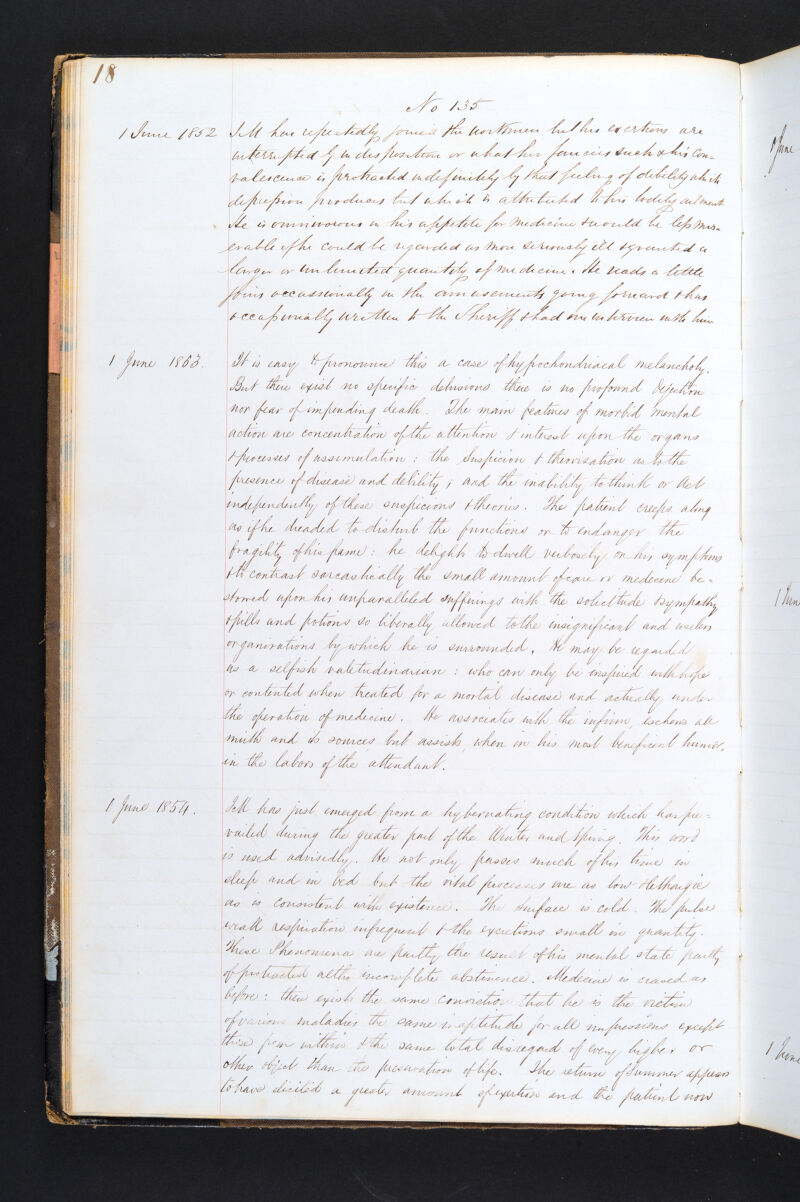 18
No 135
1 June 1852 J M has repeatedly joined the workmen but his exertions are
interrupted by indisposition or what he fancies such & his con-
valescence is protracted indefinitely by that feeling of debility which
depression produces but which is attributed to his bodily ailment
He is omnivorous in his appetite for medicine & would be less mis-
erable if he could be regarded as more seriously ill & granted a
larger or unlimited quantity of medicine. He reads a little
joins occassionally in the amusements going forward & has
occasionally written to the Sheriff & had an interview with him
1 June 1853. It is easy to pronounce this a case of hypochondriacal melancholy.
But there exist no specific delusions there is no profound dejection
nor fear of impending death. The main features of morbid mental
action are concentration of the attention & interest upon the organs
& processes of assimulation: the suspicion & theorization as to the
presence of disease and debility; and the inability to think or act
independently of these suspicions & theories. The patient creeps along
as if he dreaded to disturb the functions or to endanger the
fragility of his frame: he delights to dwell verbosely on his symptoms
& to contrast sarcastically the small amount of care or medecine be-
stowed upon his unparalleled sufferings with the solicitude & sympathy
& pills and potions so liberally allowed to the insignificant and useless
organizations by which he is surrounded. He may be regarded
as a selfish valetudinarian: who can only be inspired with hope
or contented when treated for a mortal disease and actually under
the operation of medicine. He associates with the infirm, eschews all
mirth and its sources but assists, when in his most beneficent humor,
in the labors of the attendant.
1 June 1854. J M has just emerged from a hybernating condition which has pre-
vailed during the greater part of the Winter and Spring. This word
is used advisedly. He not only passes much of his time in
sleep and in bed but the vital processes are as low & lethargic
as is consistent with existence. The surface is cold. The pulse
weak respiration infrequent & the excretions small in quantity.
These Phenomena are partly the result of his mental state partly
of protracted altho incomplete abstinence. Medicine is craved as
before: there exists the same conviction that he is the victim
of various maladies the same inaptitude for all impressions except
those from within & the same total disregard of every higher or
other object than the preservation of life. The return of Summer appears
to have elicited a greater amount of exertion and the patient now
1 June
1 June
1 June